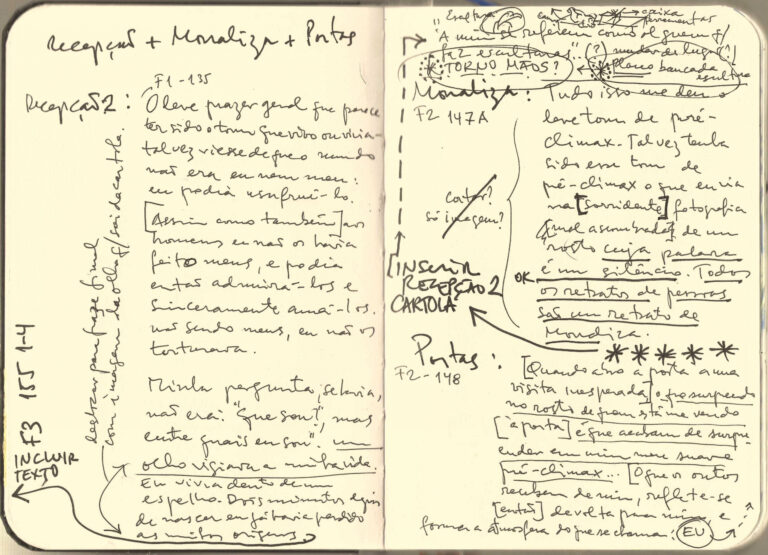 Recepção + Monaliza + Portas
F1-135
Recepção 2:
O leve prazer geral que parece
ter sido o tom que vivo ou vivia-
talvez viesse de que o mundo
não era eu nem meu:
eu podia usufruí-lo.
[Assim como também] aos
homens eu não os havia
feito meus, e podia
então admirá-los e
sinceramente amá-los.
não sendo meus, eu não os
torturava.
Minha pergunta, se havia,
não era: "Que sou?", mas
entre quais eu sou". um
olho vigiava a minha vida.
Eu vivia dentro de um
espelho. Dois minutos depois
de nascer eu já havia perdido
as minhas origens
destacar para frase final
com imagem da olha p/ sair da cartola.
F3 155 1-4
INCLUIR
TEXTO
caixa
ferramentas
"A mim se referem como alguém q
faz esculturas" (?) mudar de lugar(?)
TORNO MÃOS?
Plano bancada
escultura
Monaliza:
F2 147A
Tudo isso me deu o
leve tom de pré-
climax. Talvez tenha
sido esse tom de
pré-climax o que eu via
na [sorridente] fotografia
mal assombrada de um
rosto cuja palavra
é um silêncio. Todos
os retratos de pessoas
são um retrato de
Monaliza.
cortar?
só imagem?
OK
[INSERIR
RECEPÇÃO 2
CARTOLA
Portas:
F2-148
[Quando abro a porta a uma
visita inesperada] o que surpreendo
no rosto de quem está me vendo
[à porta] é que acabam de surpre
ender em mim meu suave
pré-climax... [O que os outros
recebem de mim, reflete-se
[então] de volta para mim, e
forma a atmosfera do que se chama: EU